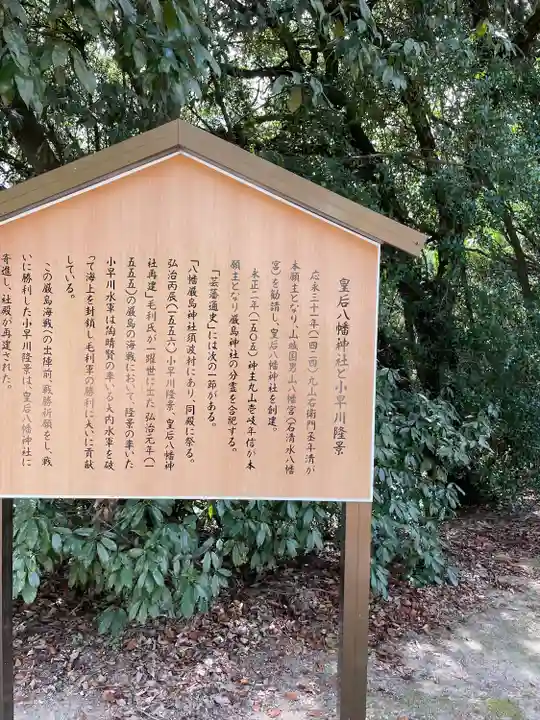 皇后八幡神社と小早川隆景
応永三十一年(一四二四)九山右衛門丞年清が
本願主となり、山城国男山八幡宮(石清水八幡
宮)を勧請し、皇后八幡神社を創建。
永正二年(一五〇五)神主丸山壱岐年信が本
願主となり厳島神社の分霊を合祀する。
「芸藩通史」には次の一節がある。
「八幡厳島神社須波村にあり、同殿に祭る。
弘治丙辰(一五五六)小早川隆景、皇后八幡神
社再建」毛利氏が一躍世に出た弘治元年(一
五五五)の厳島の海戦において、隆景の率いた
小早川水軍は陶晴賢の率いる大内水軍を破
って海上を封鎖し毛利軍の勝利に大いに貢献
している。
この厳島海戦への出陣前、戦勝祈願をし、戦
いに勝利した小早川隆景は、皇后八幡神社に
寄進し、社殿が再建された。